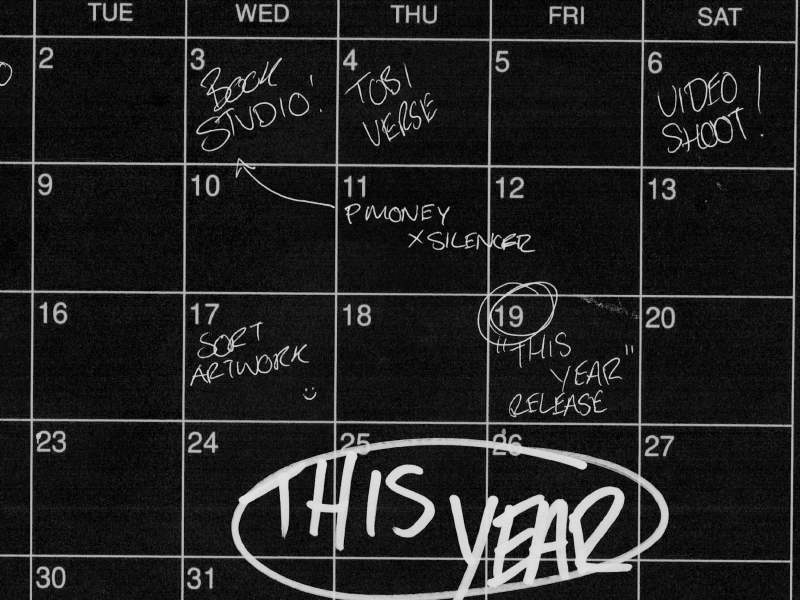 TUE WED THU FRI SAT
2 3 4 5 6
BOOK
STUDIO!
TOBI
VERSE
VIDEO
SHOOT!
9 10 11 12 13
P MONEY
X SILENCER
16 17 18 19 20
SORT
ARTWORK
"THIS
YEAR"
RELEASE
23 24 25 26 27
THIS
YEAR
30 31